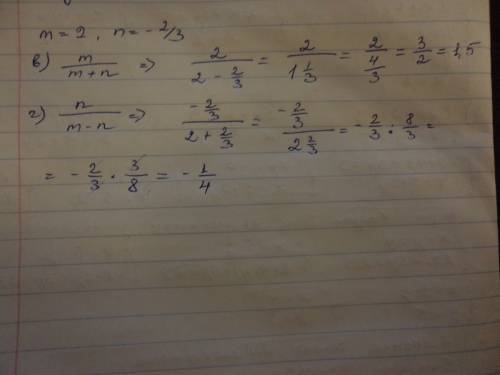 m = 2, n = -2/3
в) m/(m+n) => 2/(2 - 2/3) = 2/(1 1/3) = 2/(4/3) = 3/2 = 1,5
г) n/(m-n) => (-2/3)/(2 + 2/3) = (-2/3)/(2 2/3) = -2/3 : 8/3 =
= -2/3 · 3/8 = -1/4